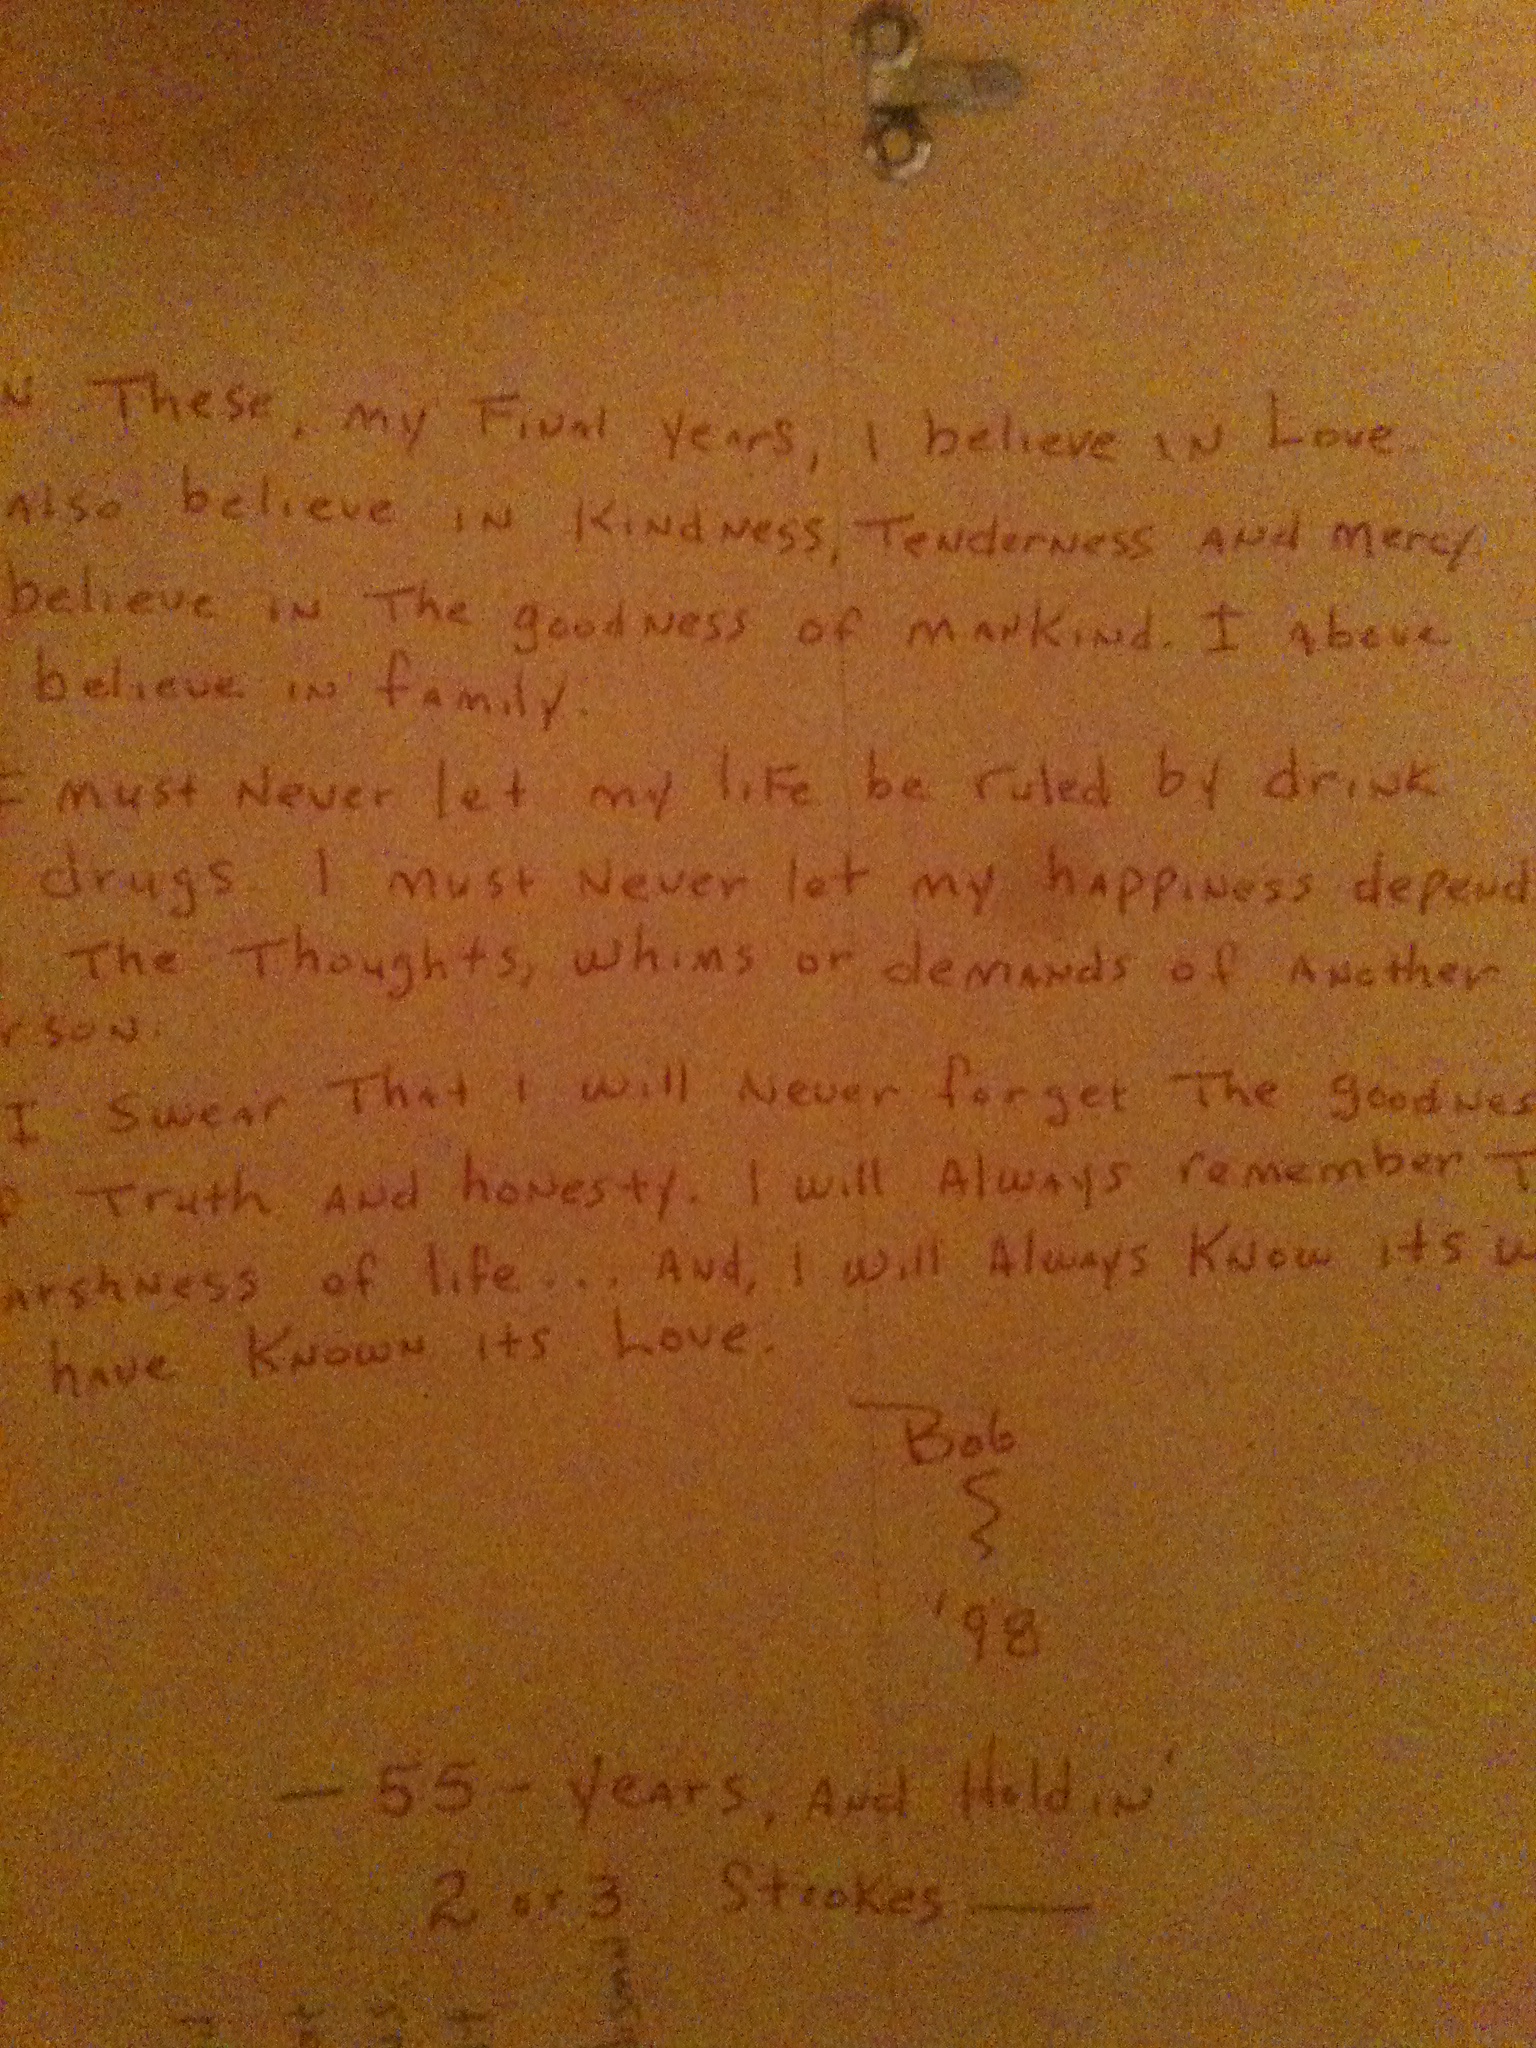 N These, my Final years, I believe in Love.
Also believe in Kindness, Tenderness and mercy.
believe in The goodness of mankind. I Above
believe in family.
I must Never let my life be ruled by drink
drugs. I must Never let my happiness depend
The Thoughts, whims or demands of Another
rson.
I swear That I will Never forget The goodnes
f Truth And honesty. I will Always remember T
arshness of life... And, I will Always Know its w
have Known its Love.
Bob
'98
— 55 - years, And Holdin'
2 or 3 Strokes —